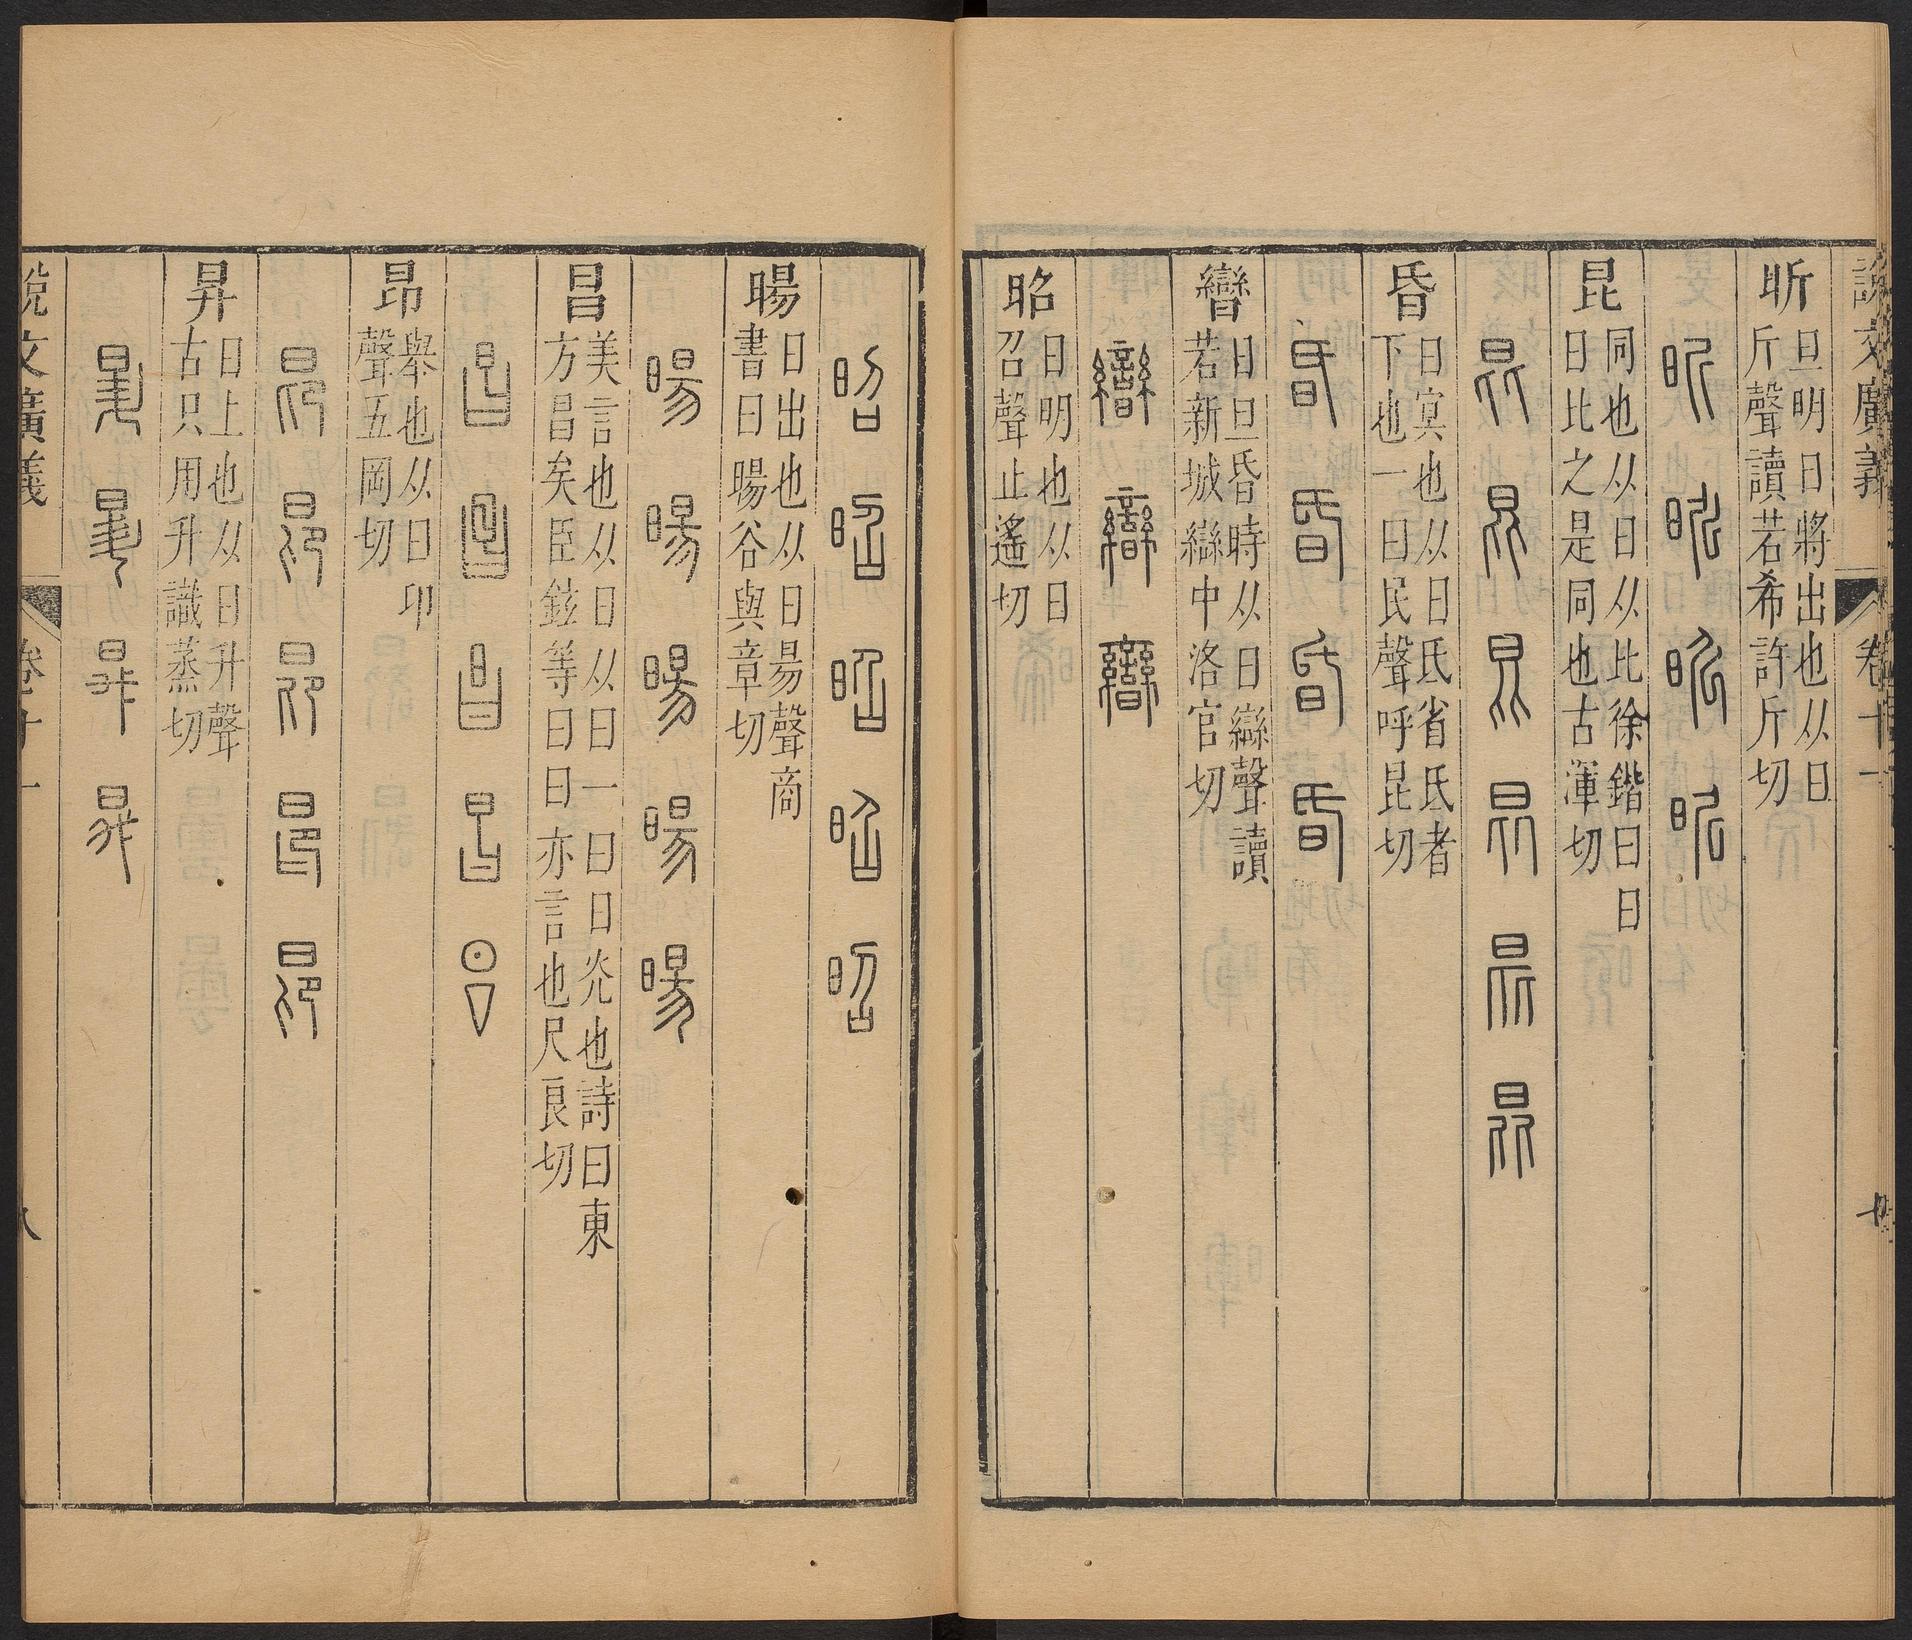 說文廣義
卷十一
昕
旦明日將出也从日
斤聲讀若希許斤切
昕昕昕昕
昆
同也从日从比徐鍇曰日
日比之是同也古渾切
昆昆昆昆昆昆
昏
日冥也从日氐省氐者
下也一曰民聲呼昆切
昏昏昏昏
曫
日旦昏時从日䜌聲讀
若新城䜌中洛官切
曫曫曫
昭
日明也从日
召聲止遙切
昭昭昭昭昭
暘
日出也从日昜聲商
書曰暘谷與章切
暘暘暘暘暘
昌
美言也从日从曰一曰日光也詩曰東
方昌矣臣鉉等曰曰亦言也尺良切
昌昌昌昌昌
昂
舉也从日卬
聲五岡切
昂昂昂昂昂
昇
日上也从日升聲
古只用升識蒸切
昇昇昇昇
說文廣義
卷十一
八